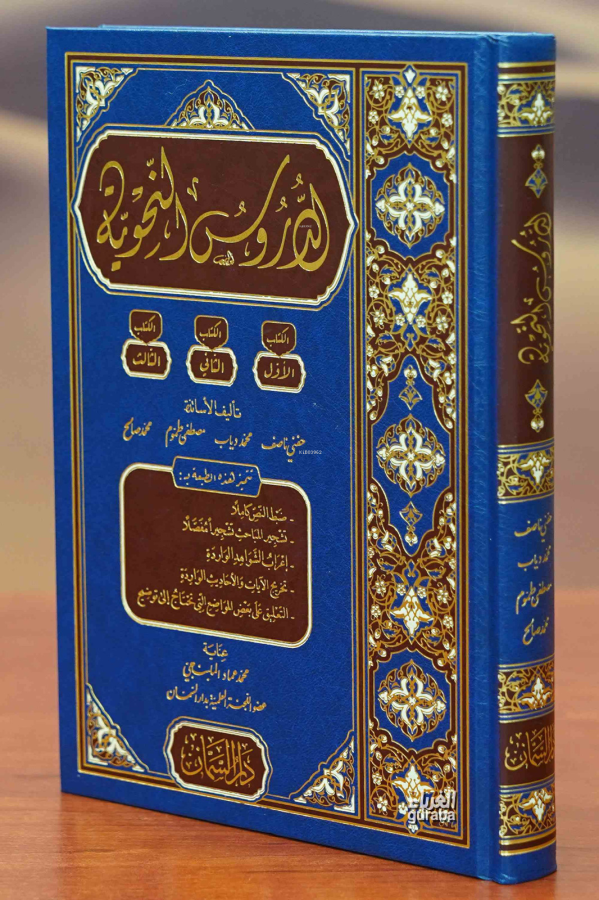 الدُّرُوسُ النَّحْوِيَّة
الكتاب الأول
الكتاب الثاني
الكتاب الثالث
تأليف الأساتذة
حفني ناصف محمد دياب مصطفى طموم محمد صالح
K1B09962
تتميز هذه الطبعة بـ:
- ضبط النص كاملًا
- تشجير المباحث تشجيرًا مفصَّلًا
- إعراب الشواهد الواردة
- تخريج الآيات والأحاديث الواردة
- التعليق على بعض المواضع التي تحتاج إلى توضيح
عناية
محمد عماد
عضو اللجنة العلمية بدار السمان
دار السمان
الدروس النحوية
حفني ناصف
محمد دياب
مصطفى طموم
محمد صالح
دار السمان
الغرباء
guraba